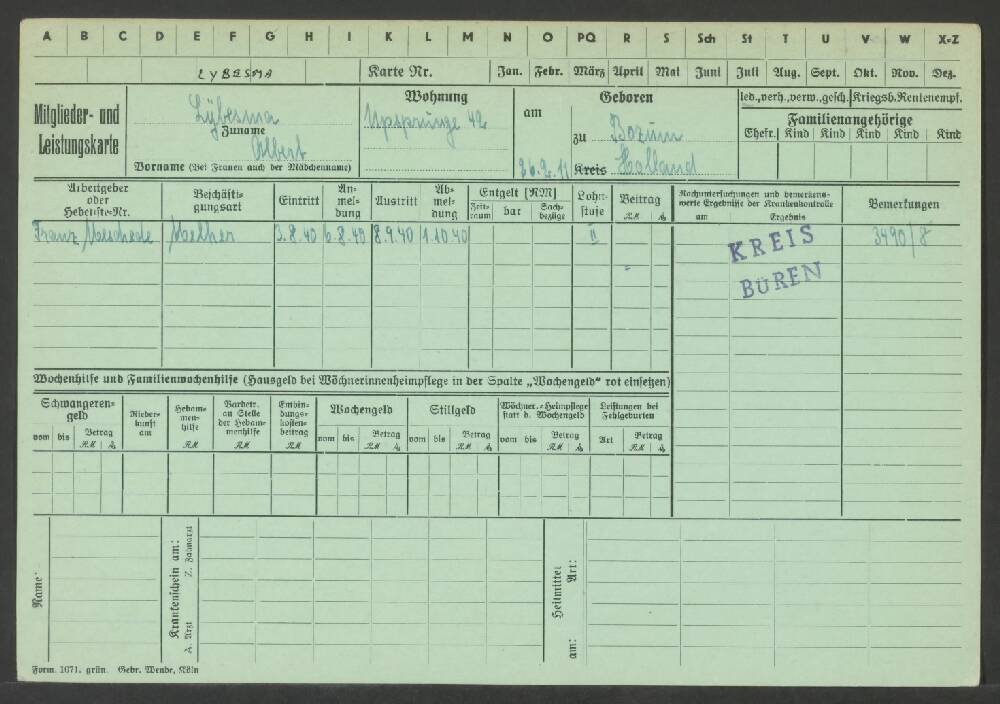 A B C D E F G H I K L M N O PQ R S Sch St T U V W X-Z
LYBESMA Karte Nr. Jan. Febr. März April Mai Juni Juli Aug. Sept. Okt. Nov. Dez.
Mitglieder- und
Leistungskarte
Lÿbesma
Zuname
Albert
Vorname (Bei Frauen auch der Mädchenname)
Wohnung
Upsprunge 42
Geboren
am
26.2.11
zu Bozum
Kreis Holland
led., verh., verw., gesch. Kriegsb.Rentenempf.
Familienangehörige
Ehefr. Kind Kind Kind Kind Kind
Arbeitgeber
oder
Hebeliste-Nr.
Beschäfti-
gungsart
Eintritt
An-
mel-
dung
Austritt
Ab-
mel-
dung
Entgelt [RM]
Zeit-
raum
bar
Sach-
bezüge
Lohn-
stufe
Beitrag
RM
Nachuntersuchungen und bemerkens-
werte Ergebnisse der Krankenkontrolle
am Ergebnis
Bemerkungen
Franz Meschede Melker 3.8.40 6.8.40 8.9.40 1.10.40 II 3490/8
KREIS
BÜREN
Wochenhilfe und Familienwochenhilfe (Hausgeld bei Wöchnerinnenheimpflege in der Spalte „Wochengeld“ rot einsetzen)
Schwangeren-
geld
vom bis Betrag
RM
Nieder-
kunft
am
Hebam-
men-
hilfe
RM
Barbetr.
an Stelle
der Hebam-
menhilfe
RM
Entbin-
dungs-
kosten-
beitrag
RM
Wochengeld
vom bis Betrag
RM
Stillgeld
vom bis Betrag
RM
Wöchner.-Heimpflege
statt d. Wochengeld
vom bis Betrag
RM
Leistungen bei
Fehlgeburten
Art Betrag
RM
Name:
Krankenschein am:
A. Arzt Z. Zahnarzt
Heilmittel
am: Art:
Form. 1071. grün. Gebr. Wende, Köln